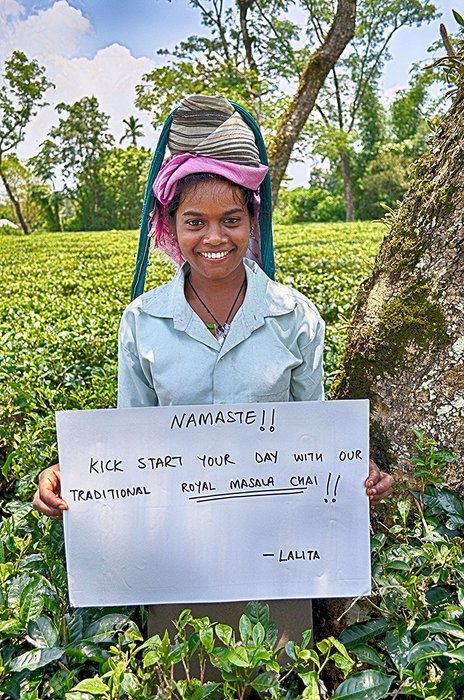 NAMASTE!!
KICK START YOUR DAY WITH OUR
TRADITIONAL ROYAL MASALA CHAI !!
- LALITA